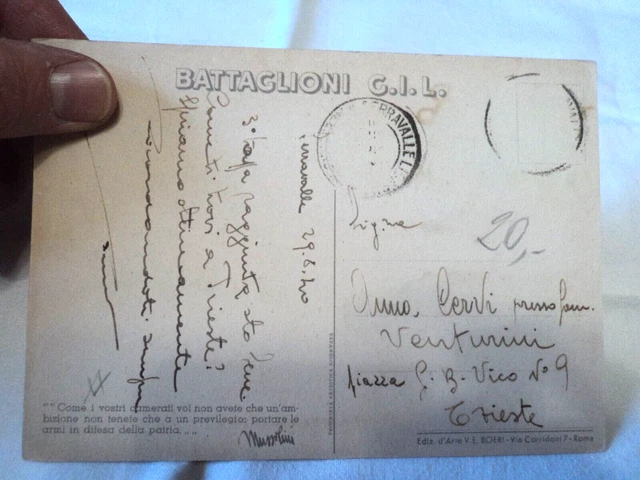 BATTAGLIONI G.I.L.
Serravalle 29.8.40
3° tappa raggiunta sto bene
Come ti trovi a Trieste?
Spiriamo ottimamente
ricordandoti sempre
SERRAVALLE
Sig.na
20,-
Anna Cervi presso fam.
Venturini
piazza G. B. Vico N° 9
Trieste
"" Come i vostri camerati voi non avete che un'am-
bizione non tenete che a un previlegio: portare le
armi in difesa della patria. ....
Mussolini
Ediz. d'Arte V. E. BOERI - Via Corridoni 7 - Roma